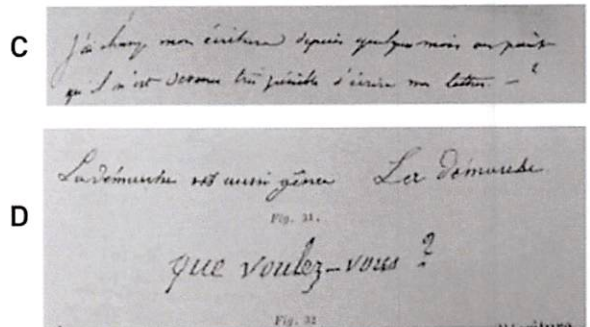 C
j'ai changé mon écriture depuis quelques mois au point
qu'il m'est devenu très pénible d'écrire une lettre. — ?
D
La démarche est aussi gênée La démarche
Fig. 31.
que voulez-vous ?
Fig. 32
l'écriture